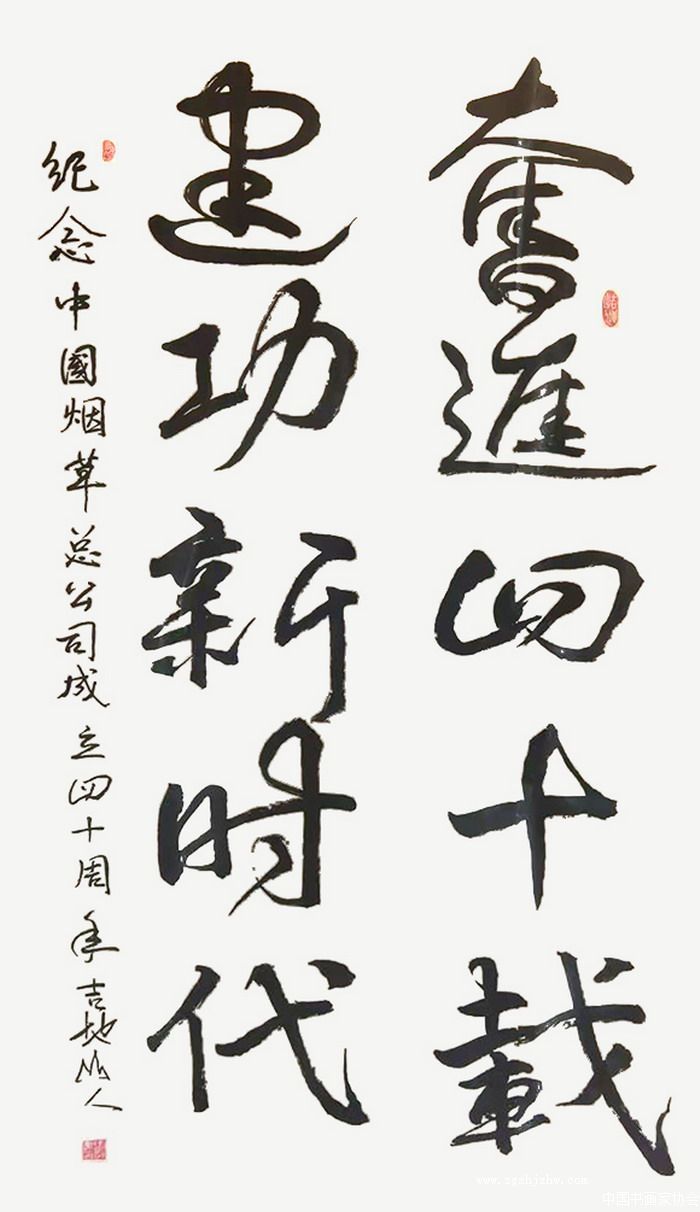 奮進四十載
建功新时代
纪念中國烟草总公司成立四十周年吉地山人
www.zgshjzhw.com
中国书画家协会